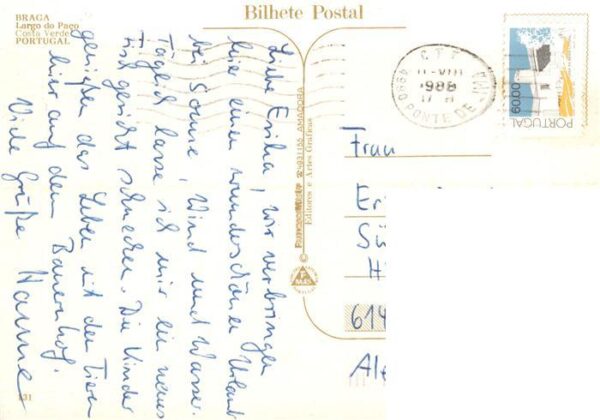 BRAGA
Largo do Paço
Costa Verde
PORTUGAL
Bilhete Postal
Liebe Erika, wir verbringen
hier einen wunderschönen Urlaub
bei Sonne, Wind und Wasser.
Täglich lasse ich mir ein neues
Fischgericht schmecken. Die Kinder
genießen das Leben mit den Tieren
hier auf dem Bauernhof.
Viele Grüße Hanne
931155 AMADORA
Editores e Artes Gráficas
CTT
1988
PONTE DE LIMA
60.00
PORTUGAL
Frau
Er
Sü
H
614
Al
131